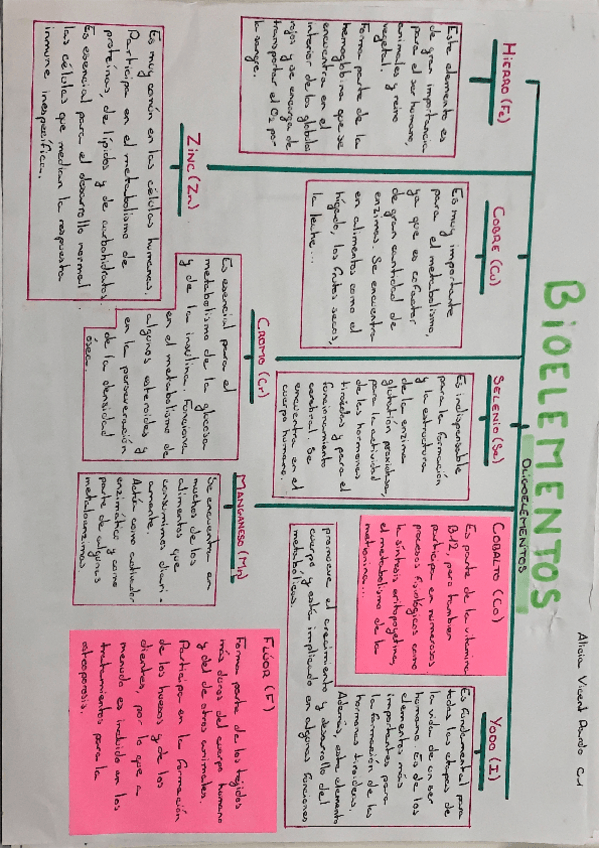 Alicia Vicent Pardo C1
BIOELEMENTOS
OLIGOELEMENTOS
HIERRO (Fe)
Este elemento es
de gran importancia
para el ser humano,
animales y reino
vegetal.
Forma parte de la
hemoglobina que se
encuentra en el
interior de los glóbulos
rojos y se encarga de
transportar el O2 por
la sangre.
COBRE (Cu)
Es muy importante
para el metabolismo,
ya que es cofactor
de gran cantidad de
enzimas. Se encuentra
en alimentos como el
hígado, los frutos secos,
la leche...
SELENIO (Se)
Es indispensable
para la formación
y la estructura
de la enzima
glutatión peroxidasa,
para la actividad
de las hormonas
tiroideas y para el
funcionamiento
cerebral. Se
encuentra en el
cuerpo humano.
COBALTO (Co)
Es parte de la vitamina
B12, pero también
participa en numerosos
procesos fisiológicos como
la síntesis eritropoyetina,
el metabolismo de la
metionina...
YODO (I)
Es fundamental para
todas las etapas de
la vida de un ser
humano. Es de los
elementos más
importantes para
la formación de las
hormonas tiroideas.
Además, este elemento
promueve el crecimiento y desarrollo del
cuerpo y está implicado en algunas funciones
metabólicas.
ZINC (Zn)
Es muy común en las células humanas.
Participa en el metabolismo de
proteínas, de lípidos y de carbohidratos.
Es esencial para el desarrollo normal
las células que median la respuesta
inmune inespecífica.
CROMO (Cr)
Es esencial para el
metabolismo de la glucosa
y de la insulina. Funciona
en el metabolismo de
algunos esteroides y
en la
de la densidad
ósea.
MANGANESO (Mn)
Se encuentra en
muchos de los
alimentos que
consumimos diari-
amente.
Actúa como activador
enzimático y como
parte de algunas
metaloenzimas.
FLÚOR (F)
Forma parte de los tejidos
más duros del cuerpo humano
y de de otros animales.
Participa en la formación
de los huesos y de los
dientes, por lo que a
menudo es incluido en los
tratamientos para la
osteoporosis.